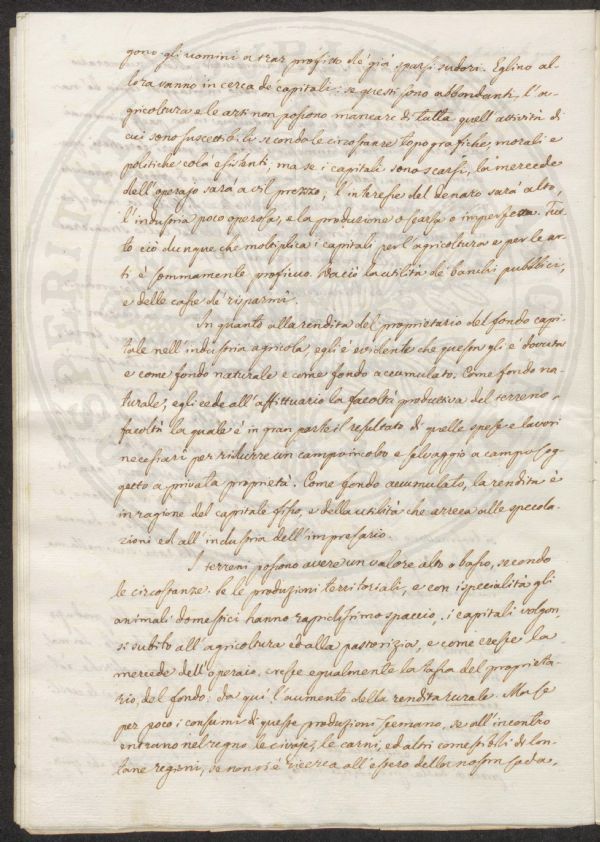 gono gli uomini a trar profitto de' già sparsi sudori. Eglino al-
lora vanno in cerca de' capitali: se questi sono abbondanti, l'a-
gricoltura e le arti non possono mancare di tutta quell'attività di
cui sono suscettibili secondo le circostanze topografiche, morali e
politiche colà esistenti, ma se i capitali sono scarsi, la mercede
dell'operajo sarà a vil prezzo, l'interesse del denaro sarà alto,
l'industria poco operosa, e la produzione o scarsa o imperfetta. Tut-
to ciò dunque che moltiplica i capitali per l'agricoltura e per le ar-
ti è sommamente proficuo. Da ciò la utilità de' banchi pubblici,
e delle casse de' risparmi.
In quanto alla rendita del proprietario del fondo capi-
tale nell'industria agricola, egli è evidente che questa gli è dovuta
e come fondo naturale e come fondo accumulato. Come fondo na-
turale, egli cede all'affittuario la facoltà produttiva del terreno,
facoltà la quale è in gran parte il resultato di quelle spese e lavori
necessarî per ridurre un campo incolto e selvaggio a campo sog-
getto a privata proprietà. Come fondo accumulato, la rendita è
in ragione del capitale fisso, e della utilità che arreca alle specola-
zioni ed all'industria dell'impresario.
I terreni possono avere un valore alto o basso, secondo
le circostanze. Se le produzioni territoriali, e con ispecialità gli
animali domestici hanno rapidissimo spaccio, i capitali volgon-
si subito all'agricoltura ed alla pastorizia, e come cresce la
mercede dell'operaio, cresce egualmente la tassa del proprieta-
rio del fondo: da qui l'aumento della rendita rurale. Ma se
per poco i consumi di queste produzioni scemano, se all'incontro
entrano nel regno le civaje, le carni, ed altri comestibili di lon-
tane regioni, se non vi è ricerca all'estero della nostra seta,